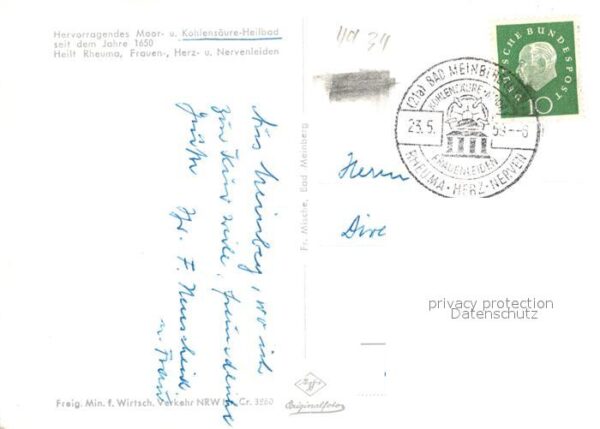 Hervorragendes Moor- u. Kohlensäure-Heilbad
seit dem Jahre 1650
Heilt Rheuma, Frauen-, Herz- u. Nervenleiden
Aus Meinberg, wo ich
zur Kur weile, freundliche
Grüße
Ihr F.
u. Frau
Fr. Mische, Bad Meinberg
Herrn
Dire
(21a) BAD MEINBERG
23.5. 59--8
FRAUENLEIDEN
RHEUMA-HERZ-NERVEN
DEUTSCHE BUNDESPOST
10
privacy protection
Datenschutz
Agfa
Originalfoto
Freig. Min. f. Wirtsch. Verkehr NRW Cr. 3260